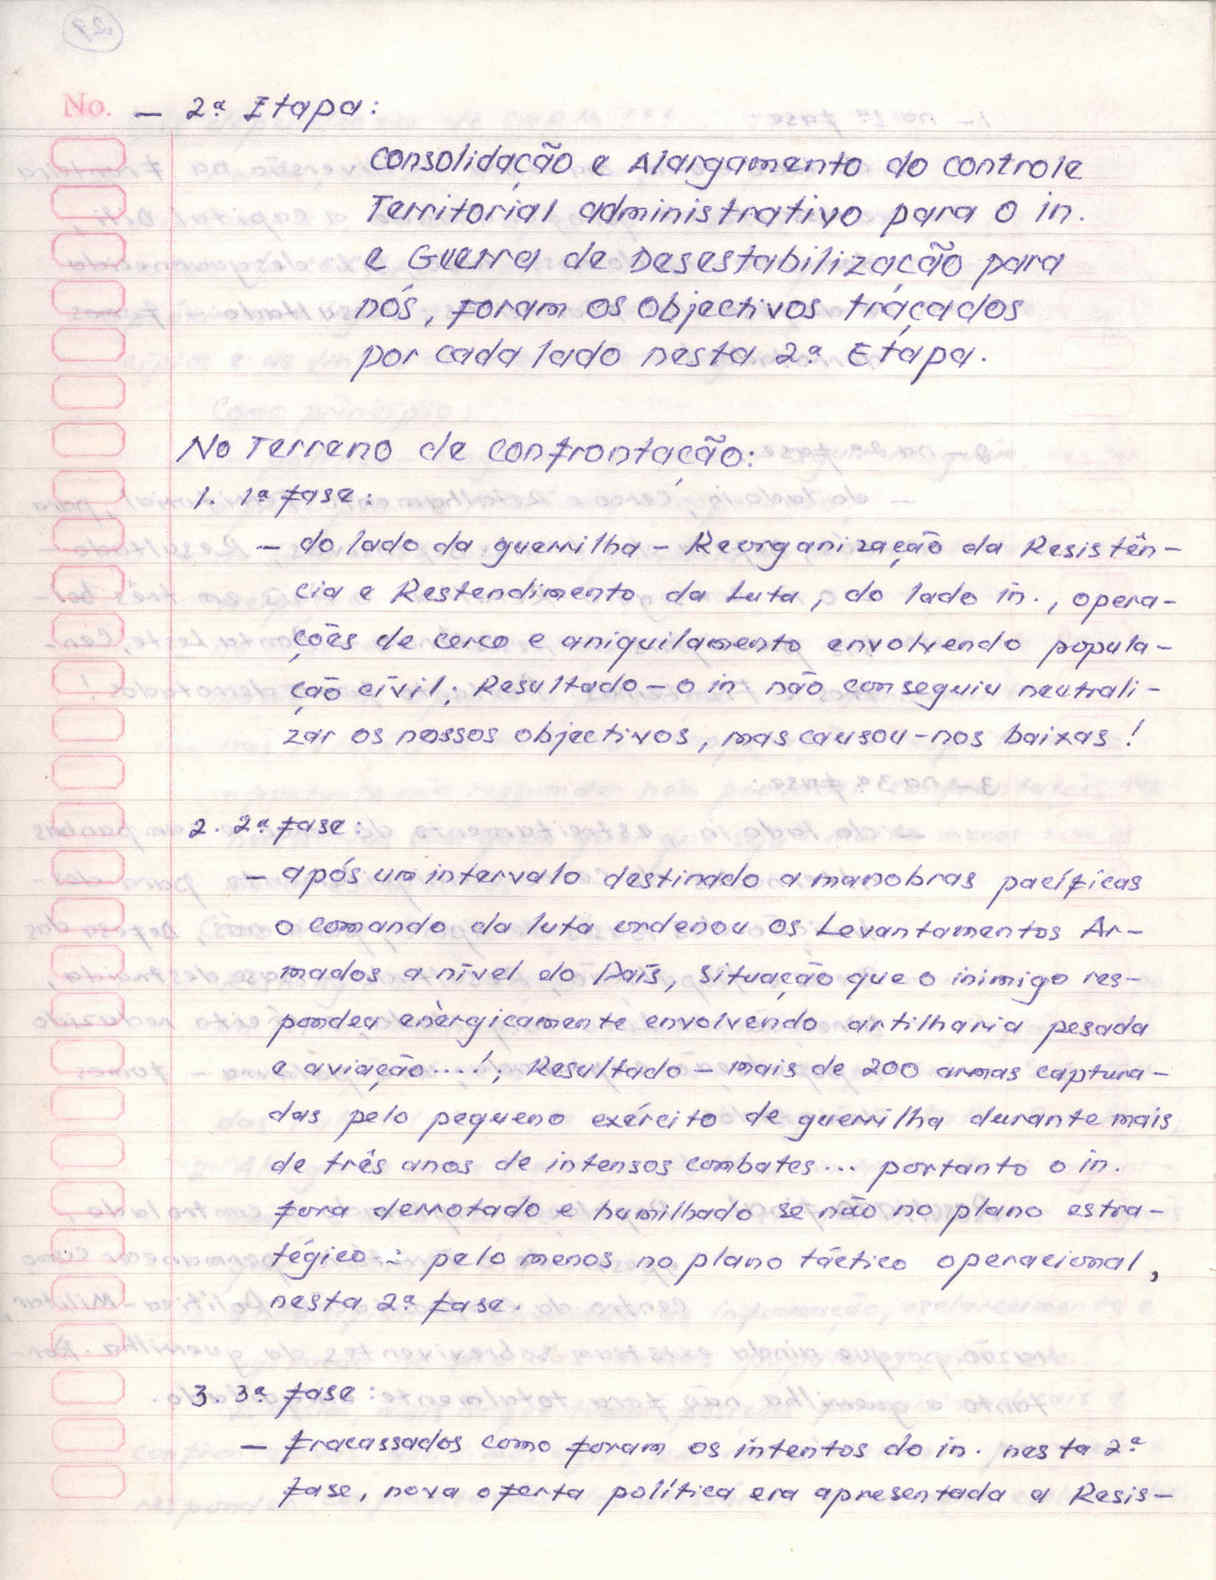 No. — 2ª Etapa:
Consolidação e Alargamento do controle
Territorial administrativo para o in.
e Guerra de Desestabilização para
nós, foram os objectivos tráçados
por cada lado nesta 2ª Etapa.
No Terreno de confrontação:
1. 1ª fase:
— do lado da guerrilha — Reorganização da Resistên-
cia e Restendimento da Luta, do lado in., opera-
ções de cerco e aniquilamento envolvendo popula-
ção civil; Resultado — o in não conseguiu neutrali-
zar os nossos objectivos, mas causou-nos baixas!
2. 2ª fase:
— após um intervalo destinado a manobras pacíficas
o comando da luta ordenou os Levantamentos Ar-
mados a nível do País, situação que o inimigo res-
pondeu enèrgicamente envolvendo artilharia pesada
e aviação....!; Resultado — mais de 200 armas captura-
das pelo pequeno exército de guerrilha durante mais
de três anos de intensos combates... portanto o in.
fora derrotado e humilhado se não no plano estra-
tégico : pelo menos no plano táctico operacional,
nesta 2ª fase.
3. 3ª fase:
— fracassados como foram os intentos do in. nesta 2ª
fase, nova oferta política era apresentada a Resis-